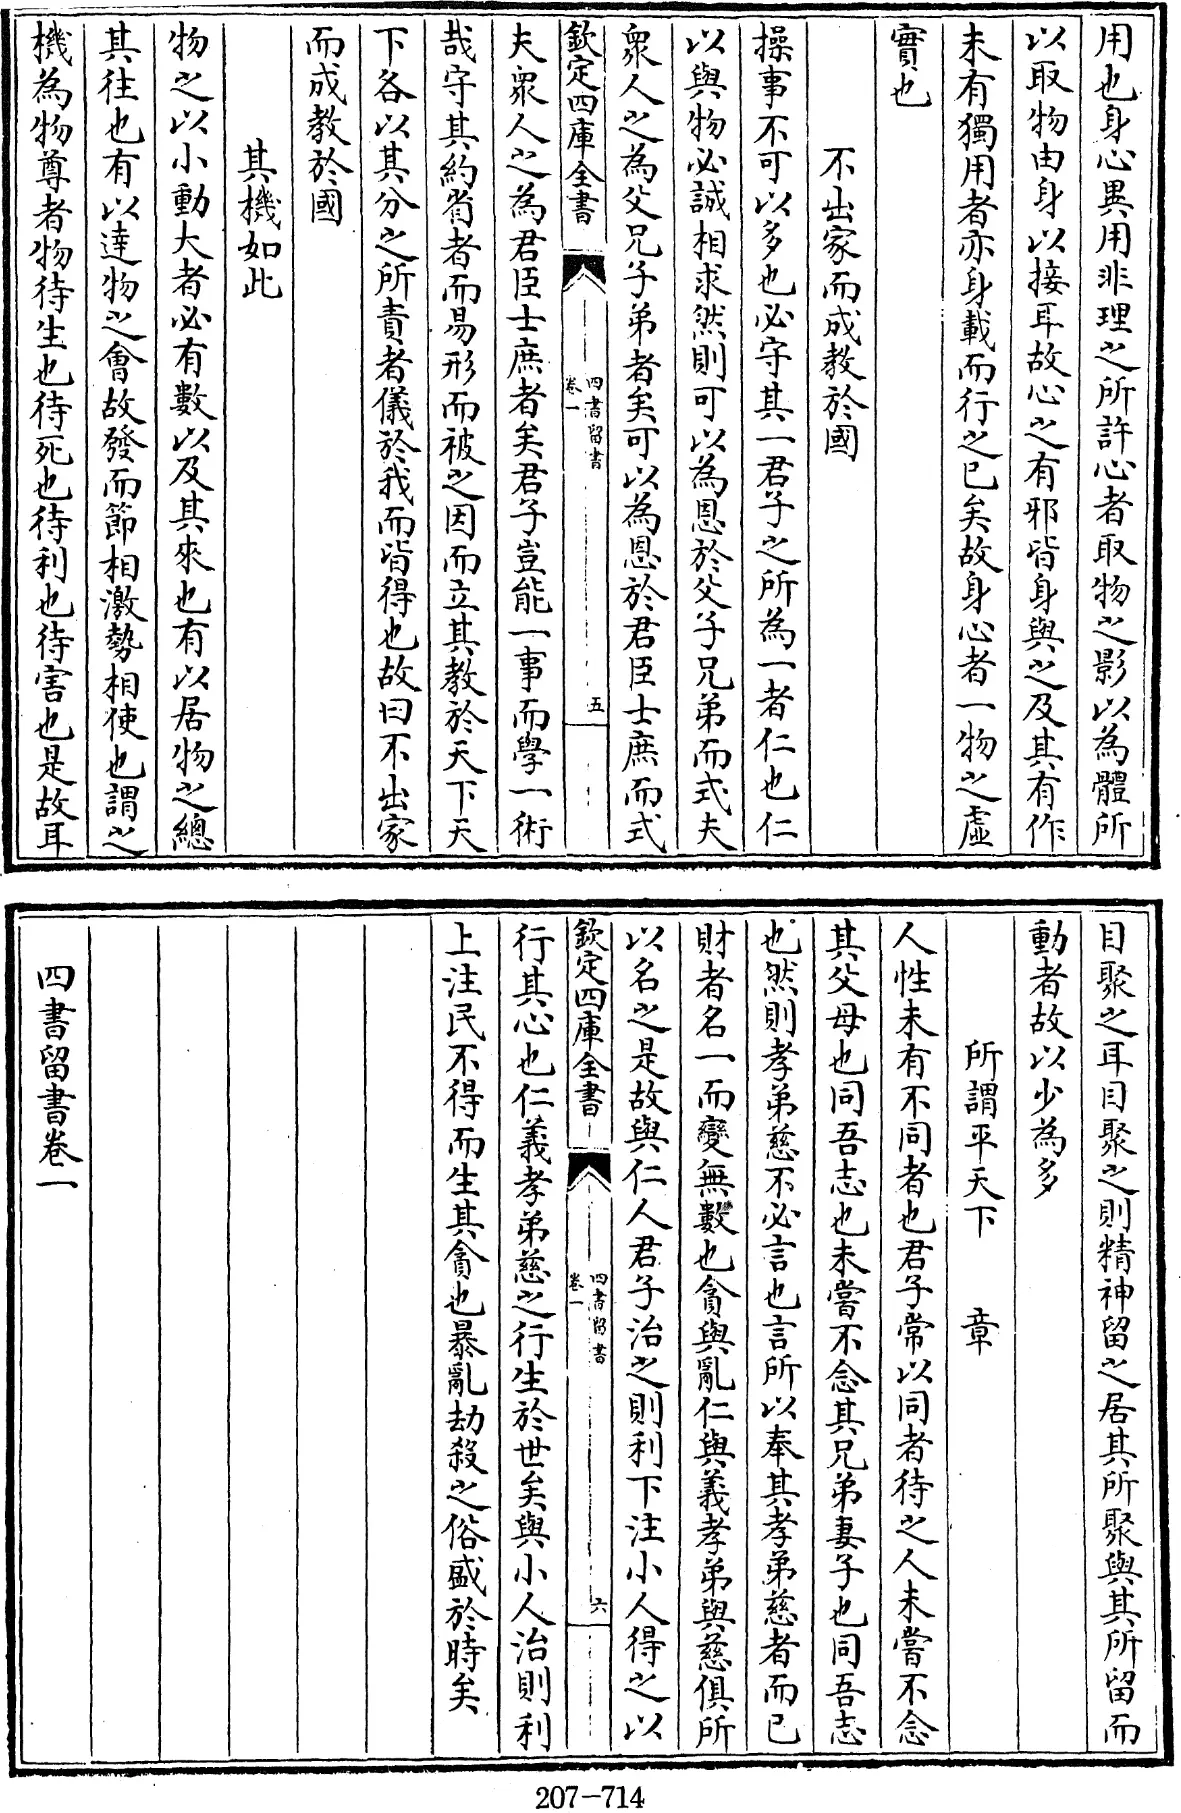 用也身心異用非理之所許心者取物之影以為體所
以取物由身以接耳故心之有邪皆身與之及其有作
未有獨用者亦身載而行之已矣故身心者一物之虛
實也
不出家而成教於國
操事不可以多也必守其一君子之所為一者仁也仁
以與物必誠相求然則可以為恩於父子兄弟而式夫
衆人之為父兄子弟者矣可以為恩於君臣士庶而式
欽定四庫全書
四書留書
卷一
五
夫衆人之為君臣士庶者矣君子豈能一事而學一術
哉守其約省者而易形而被之因而立其教於天下天
下各以其分之所責者儀於我而皆得也故曰不出家
而成教於國
其機如此
物之以小動大者必有數以及其來也有以居物之總
其往也有以達物之會故發而節相激勢相使也謂之
機為物尊者物待生也待死也待利也待害也是故耳
目聚之耳目聚之則精神留之居其所聚與其所留而
動者故以少為多
所謂平天下 章
人性未有不同者也君子常以同者待之人未嘗不念
其父母也同吾志也未嘗不念其兄弟妻子也同吾志
也然則孝弟慈不必言也言所以奉其孝弟慈者而已
財者名一而變無數也貪與亂仁與義孝弟與慈俱所
以名之是故與仁人君子治之則利下注小人得之以
欽定四庫全書
四書留書
卷一
六
行其心也仁義孝弟慈之行生於世矣與小人治則利
上注民不得而生其貪也暴亂劫殺之俗盛於時矣
四書留書卷一
207-714